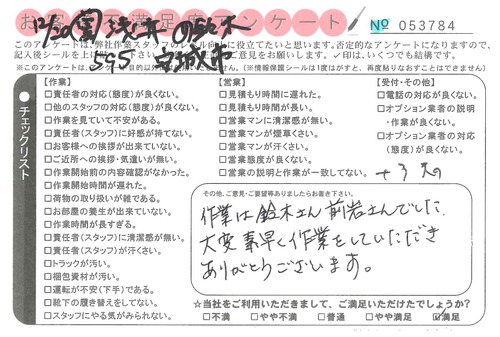 お客様満足度アンケート
№ 053784
このアンケートは、弊社作業スタッフのレベル向上に役立てたいと思います。否定的なアンケートになりますので、
✓印は、いくつでも結構です。
チェックリスト
【作業】
□責任者の対応(態度)が良くない。
□他のスタッフの対応(態度)が良くない。
□作業を見ていて不安がある。
□責任者(スタッフ)に好感が持てない。
□お客様への挨拶が出来ていない。
□ご近所への挨拶・気遣いが無い。
□作業開始前の内容確認がなかった。
□作業開始時間が遅れた。
□荷物の取り扱いが雑である。
□お部屋の養生が出来ていない。
□作業時間が長すぎる。
□責任者(スタッフ)に清潔感が無い。
□責任者(スタッフ)が汗くさい。
□トラックが汚い。
□梱包資材が汚い。
□運転が不安(下手)である。
□靴下の履き替えをしてない。
□スタッフにやる気がみられない。
【営業】
□見積もり時間に遅れた。
□見積もり時間が長い。
□営業マンに清潔感が無い。
□営業マンが煙草くさい。
□営業マンが汗くさい。
□営業態度が良くない。
□営業の説明と作業が一致してない。
【受付・その他】
□電話の対応が良くない。
□オプション業者の説明
・作業が良くない。
□オプション業者の対応
(態度)が良くない。
その他、ご意見・ご要望等ありましたらお書き下さい。
作業は鈴木さん前岩さんでした。
大変素早く作業をしていただき
ありがとうございます。
☆当社をご利用いただきまして、ご満足いただけたでしょうか?
□不満 □やや不満 □普通 □やや満足 ☑満足